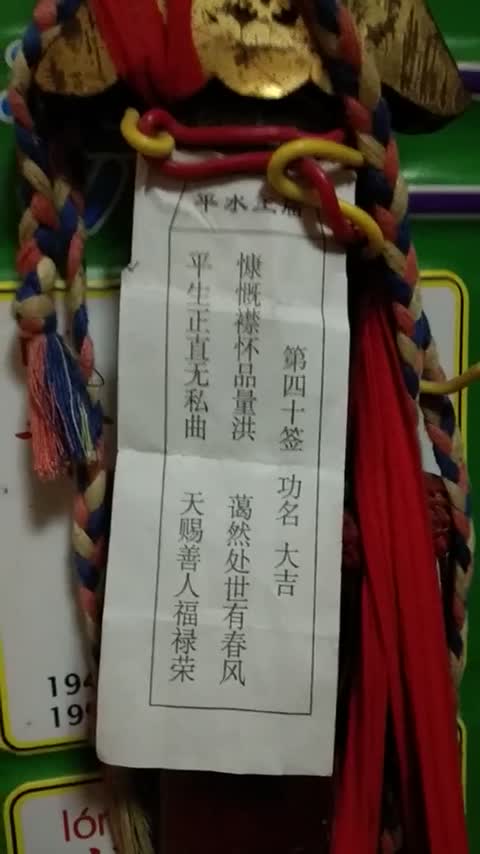 平水王庙
第四十签 功名 大吉
慷慨襟怀品量洪 蔼然处世有春风
平生正直无私曲 天赐善人福禄荣